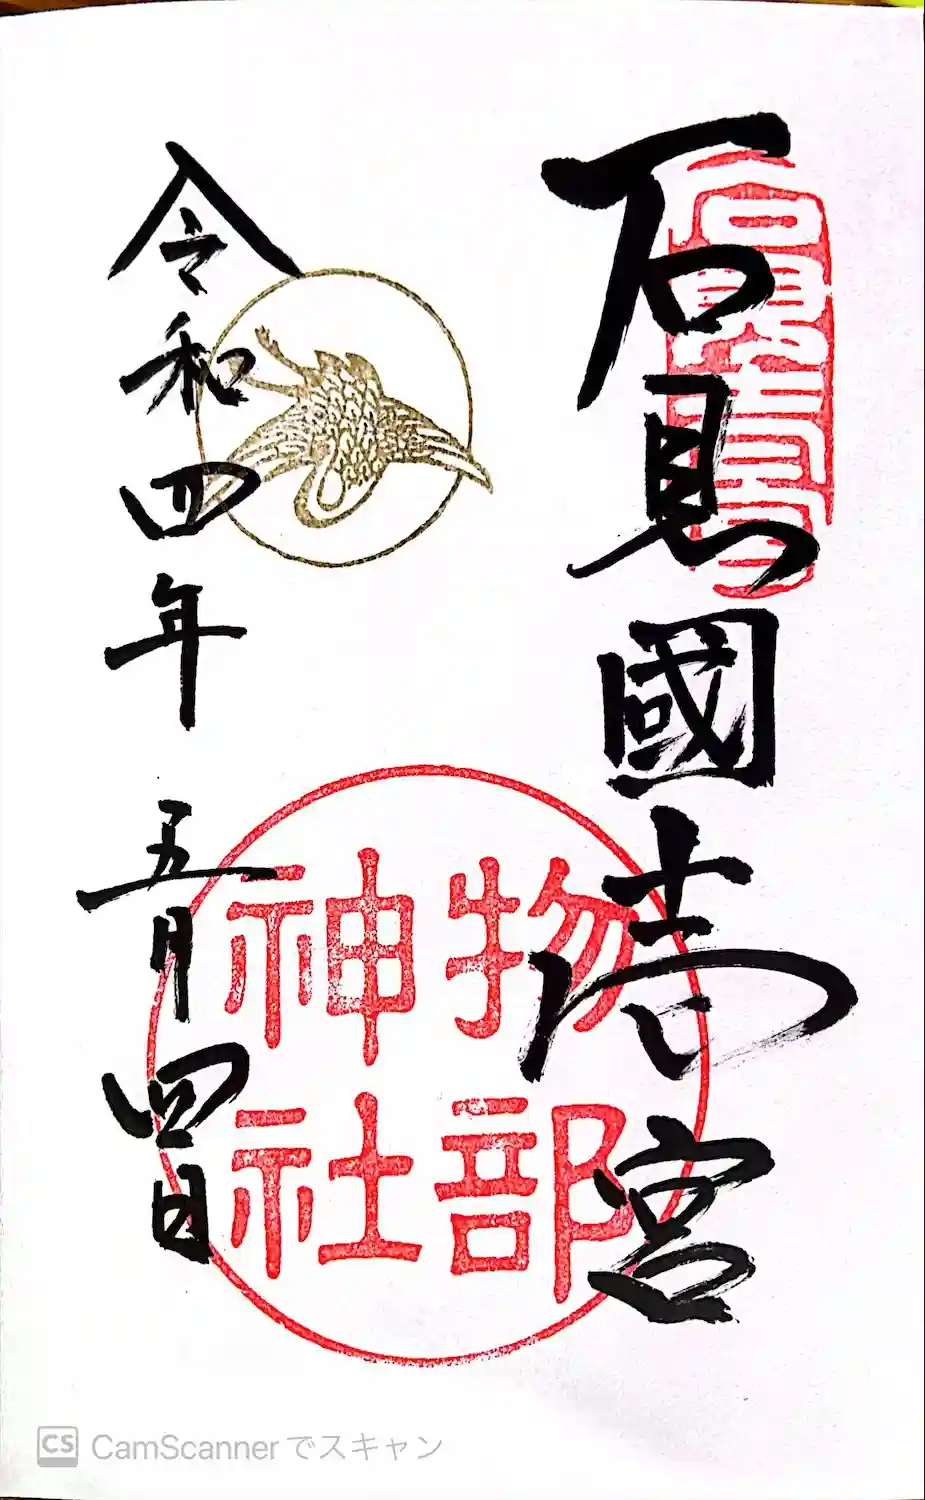 石見國壱宮
物部
神社
令和四年 五月四日
CS CamScanner でスキャン